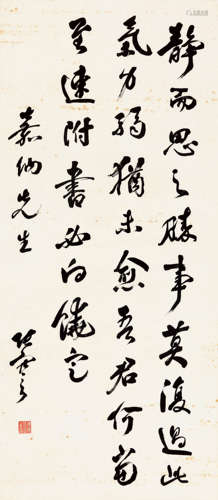 静而思之勝事莫復過此
氣力弱猶未愈吾君何當
至速附書必向饒定
嘉納先生